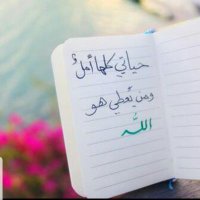 حياتي كلها أملٌ
ومن يُعطي هو
اللّٰه